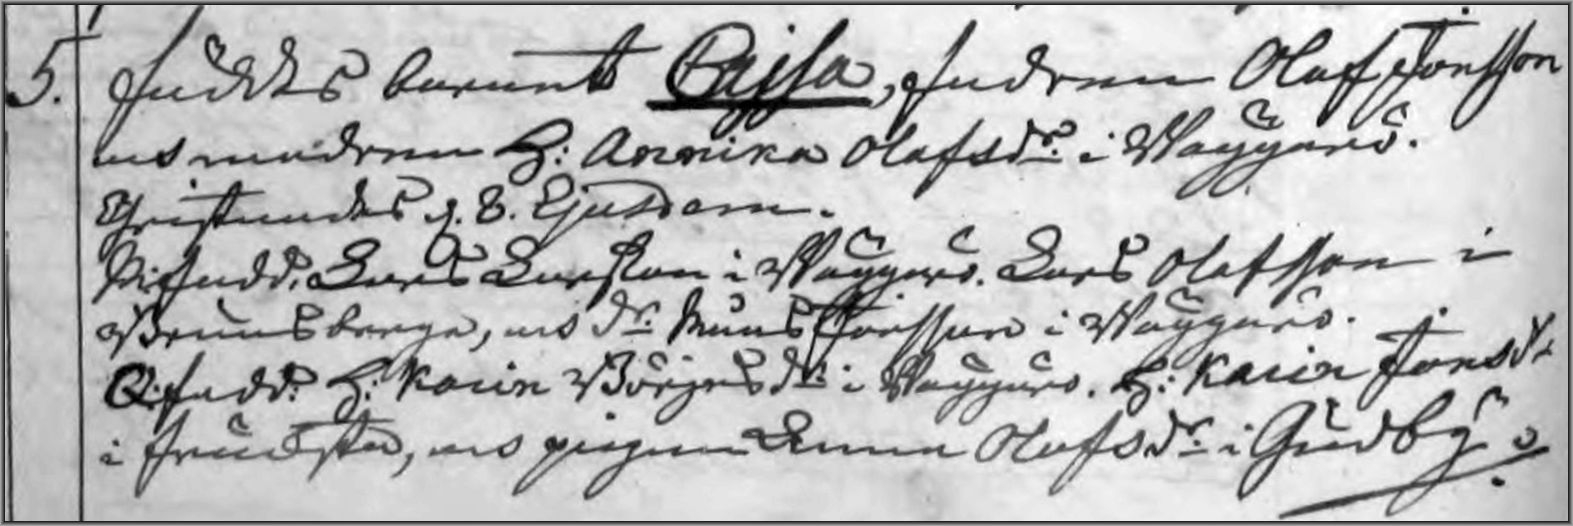 5. Föddes barnet Cajsa, fadren Olof Jonsson
och modren H: Annika Olofsdr: i Waggarö.
Christnades d. 8. Ejusdem.
M.fadd. Lars Larsson i Waggarö. Lars Olofsson i
Brunsberga, och dr: Måns i Waggarö.
Q:fadd: H: Karin Börjesdr: i Waggarö. H: Karin Jonsdr
i, och pigan Anna Olofsdr: i Gudby